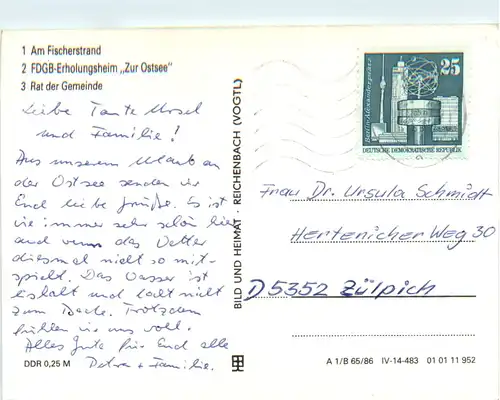 1 Am Fischerstrand
2 FDGB-Erholungsheim „Zur Ostsee"
3 Rat der Gemeinde
Liebe Tante Ursel
und Familie!
Aus unserem Urlaub an
der Ostsee senden wir
Euch liebe Grüße. Es ist
wie immer sehr schön hier
auch wenn das Wetter
diesmal nicht so mit-
spielt. Das Wasser ist
eiskalt und lockt nicht
zum Bade. Trotzdem
fühlen wir uns wohl.
Alles Gute für Euch alle
Petra + Familie.
DDR 0,25 M
BILD UND HEIMAT · REICHENBACH (VOGTL)
25
Berlin-Alexanderplatz
DEUTSCHE DEMOKRATISCHE REPUBLIK
Frau Dr. Ursula Schmidt
Hertenicher Weg 30
D 5352 Zülpich
A 1/B 65/86 IV-14-483 01 01 11 952